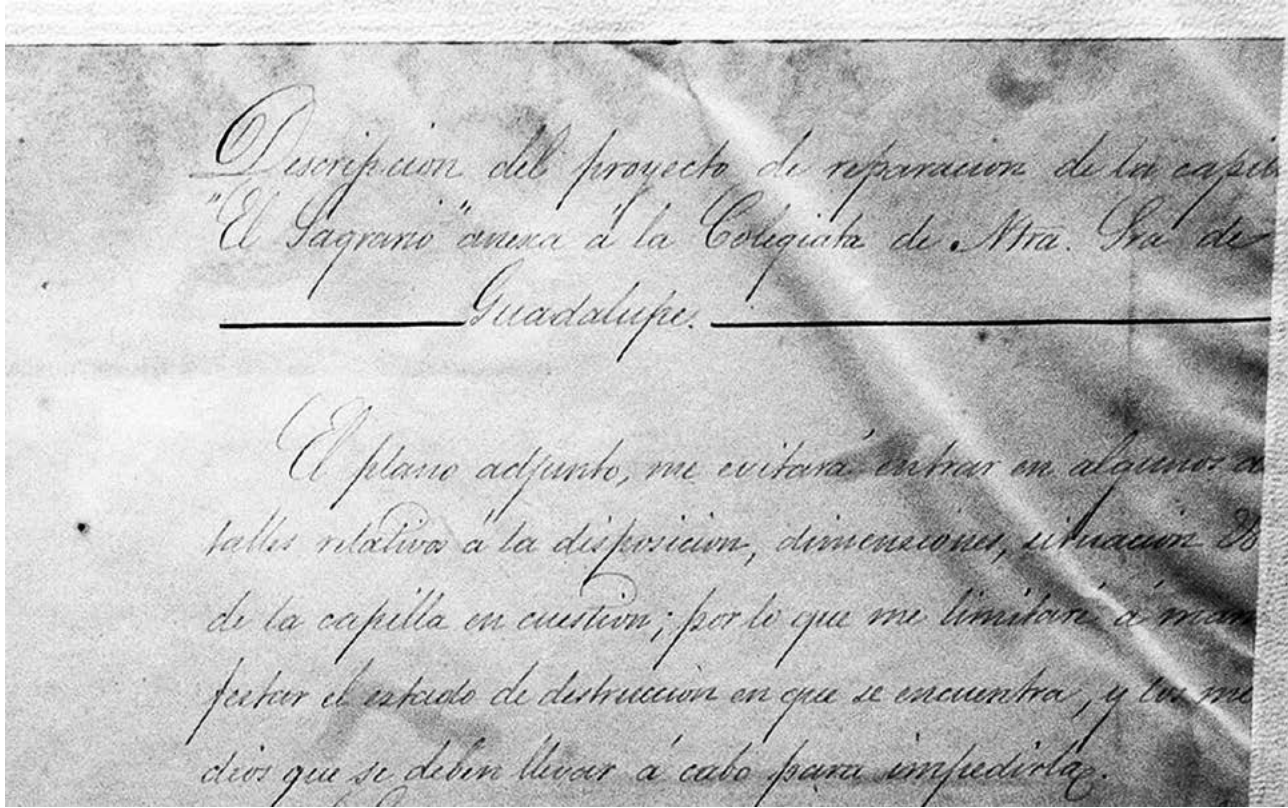 Descripcion del proyecto de reparacion de la capi
"El Sagrario" anexa á la Colegiata de Ntra. Sra de
Guadalupe.
El plano adjunto, me evitará entrar en algunos
talles relativos á la disposicion, dimensiones, situacion
de la capilla en cuestion; por lo que me limitaré á mani
festar el estado de destruccion en que se encuentra, y los me
dios que se deben llevar á cabo para impedirla.